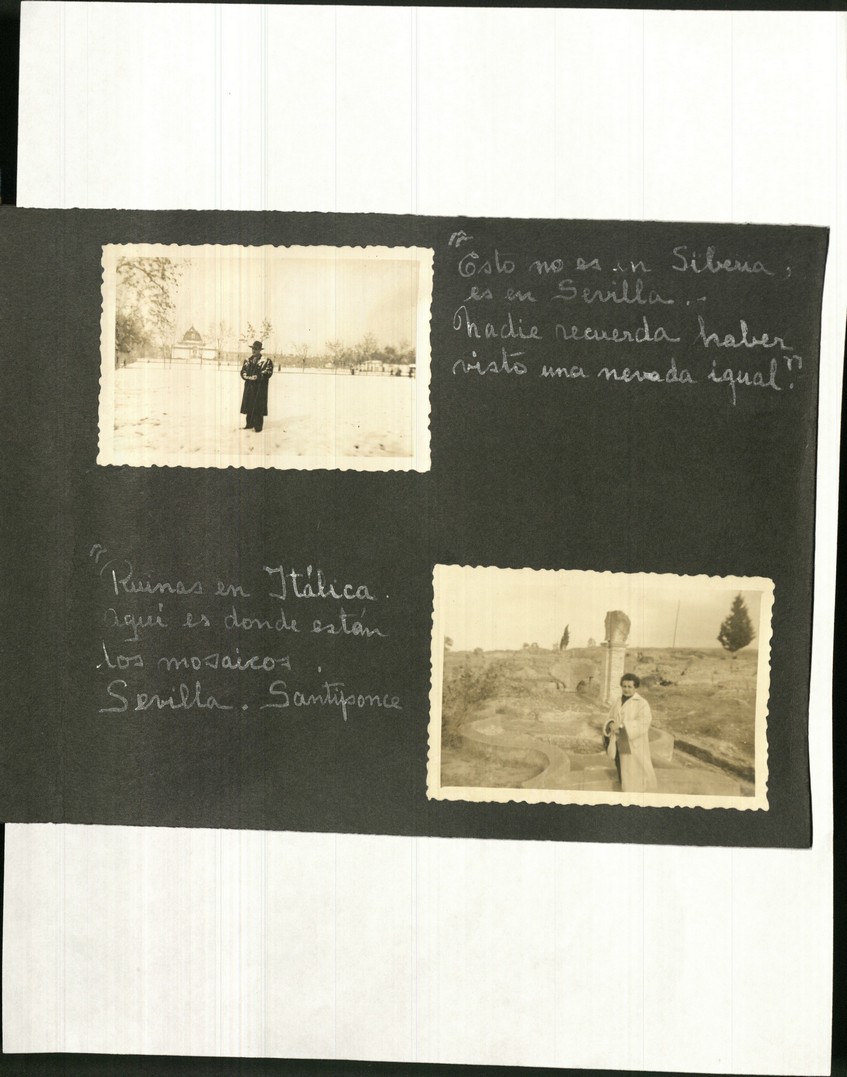 "Esto no es en Siberia,
es en Sevilla.-
Nadie recuerda haber
visto una nevada igual."
"Ruinas en Itálica.
Aquí es donde están
los mosaicos.
Sevilla. Santiponce